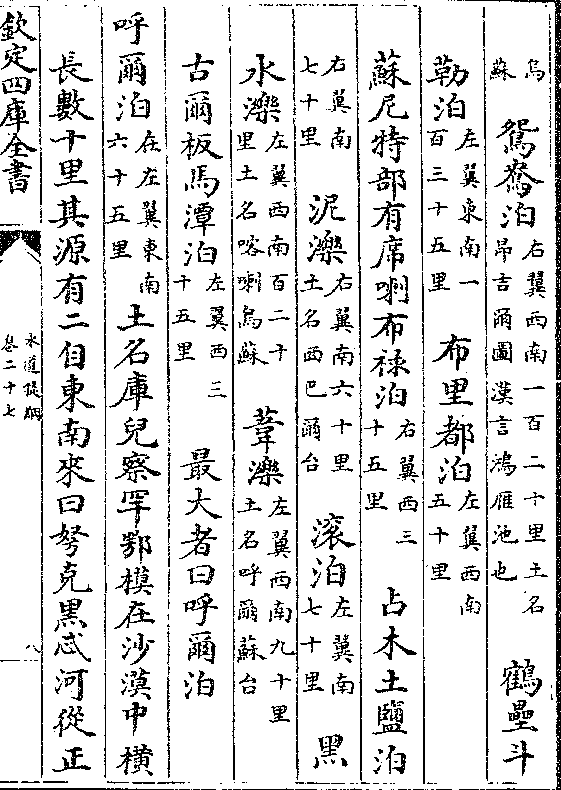 烏蘇鴛鴦泊右翼西南一百二十里土名昂吉爾圖漢言鴻雁池也鶴壘斗
勒泊左翼東南一百三十五里布里都泊左翼西南五十里
蘇尼特部有席喇布祿泊右翼西三十五里占木土鹽泊
右翼南七十里泥濼右翼南六十里土名西巴爾台滚泊左翼南七十里黑
水濼左翼西南百二十里土名喀喇烏蘇葦濼左翼西南九十里土名呼爾蘇台
古爾板馬潭泊左翼西三十五里最大者曰呼爾泊
呼爾泊在左翼東南六十五里土名庫兒察罕鄂模在沙漠中橫
長數十里其源有二自東南來曰努克黑忒河從正
欽定四庫全書
水道提綱
卷二十七
八